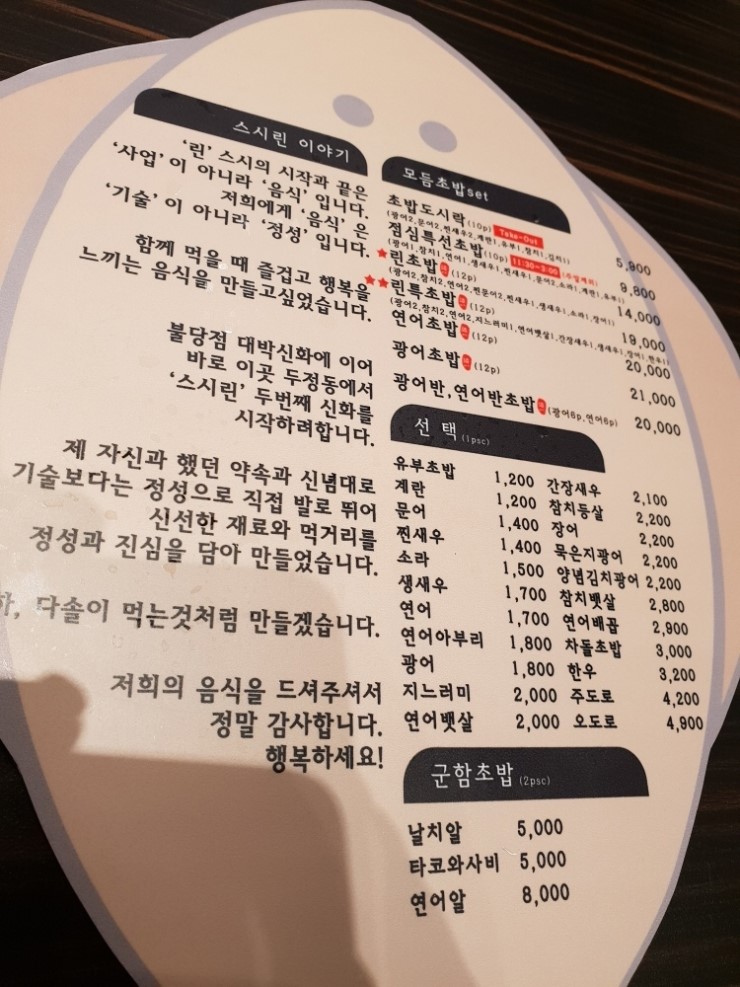 스시린 이야기
'린' 스시의 시작과 끝은
'사업'이 아니라 '음식' 입니다.
저희에게 '음식' 은
'기술' 이 아니라 '정성' 입니다.
함께 먹을 때 즐겁고 행복을
느끼는 음식을 만들고싶었습니다.
불당점 대박신화에 이어
바로 이곳 두정동에서
'스시린' 두번째 신화를
시작하려합니다.
제 자신과 했던 약속과 신념대로
기술보다는 정성으로 직접 발로 뛰어
신선한 재료와 먹거리를
정성과 진심을 담아 만들었습니다.
다솔이 먹는것처럼 만들겠습니다.
저희의 음식을 드셔주셔서
정말 감사합니다.
행복하세요!
모듬초밥set
초밥도시락(10p) Take-Out 5,900
(광어2,문어2,찐새우2,계란1,유부1,참치1,김치1)
점심특선초밥(10p) 11:30~3:00 (주말제외) 9,800
(광어1,참치1,연어1,생새우1,찐새우1,문어2,소라1,계란1,유부1)
★린초밥(12p) 14,000
(광어2,참치2,연어2,찐문어2,찐새우1,생새우1,소라1,장어1)
★★린특초밥(12p) 19,000
(광어2,참치2,연어2,지느러미1,연어뱃살1,간장새우1,생새우1,장어1,한우1)
연어초밥(12p) 20,000
광어초밥(12p) 21,000
광어반,연어반초밥(광어6p,연어6p) 20,000
선택(1psc)
유부초밥 1,200 간장새우 2,100
계란 1,200 참치등살 2,200
문어 1,400 장어 2,200
찐새우 1,400 묵은지광어 2,200
소라 1,500 양념김치광어 2,200
생새우 1,700 참치뱃살 2,800
연어 1,700 연어배꼽 2,900
연어아부리 1,800 차돌초밥 3,000
광어 1,800 한우 3,200
지느러미 2,000 주도로 4,200
연어뱃살 2,000 오도로 4,900
군함초밥(2psc)
날치알 5,000
타코와사비 5,000
연어알 8,000